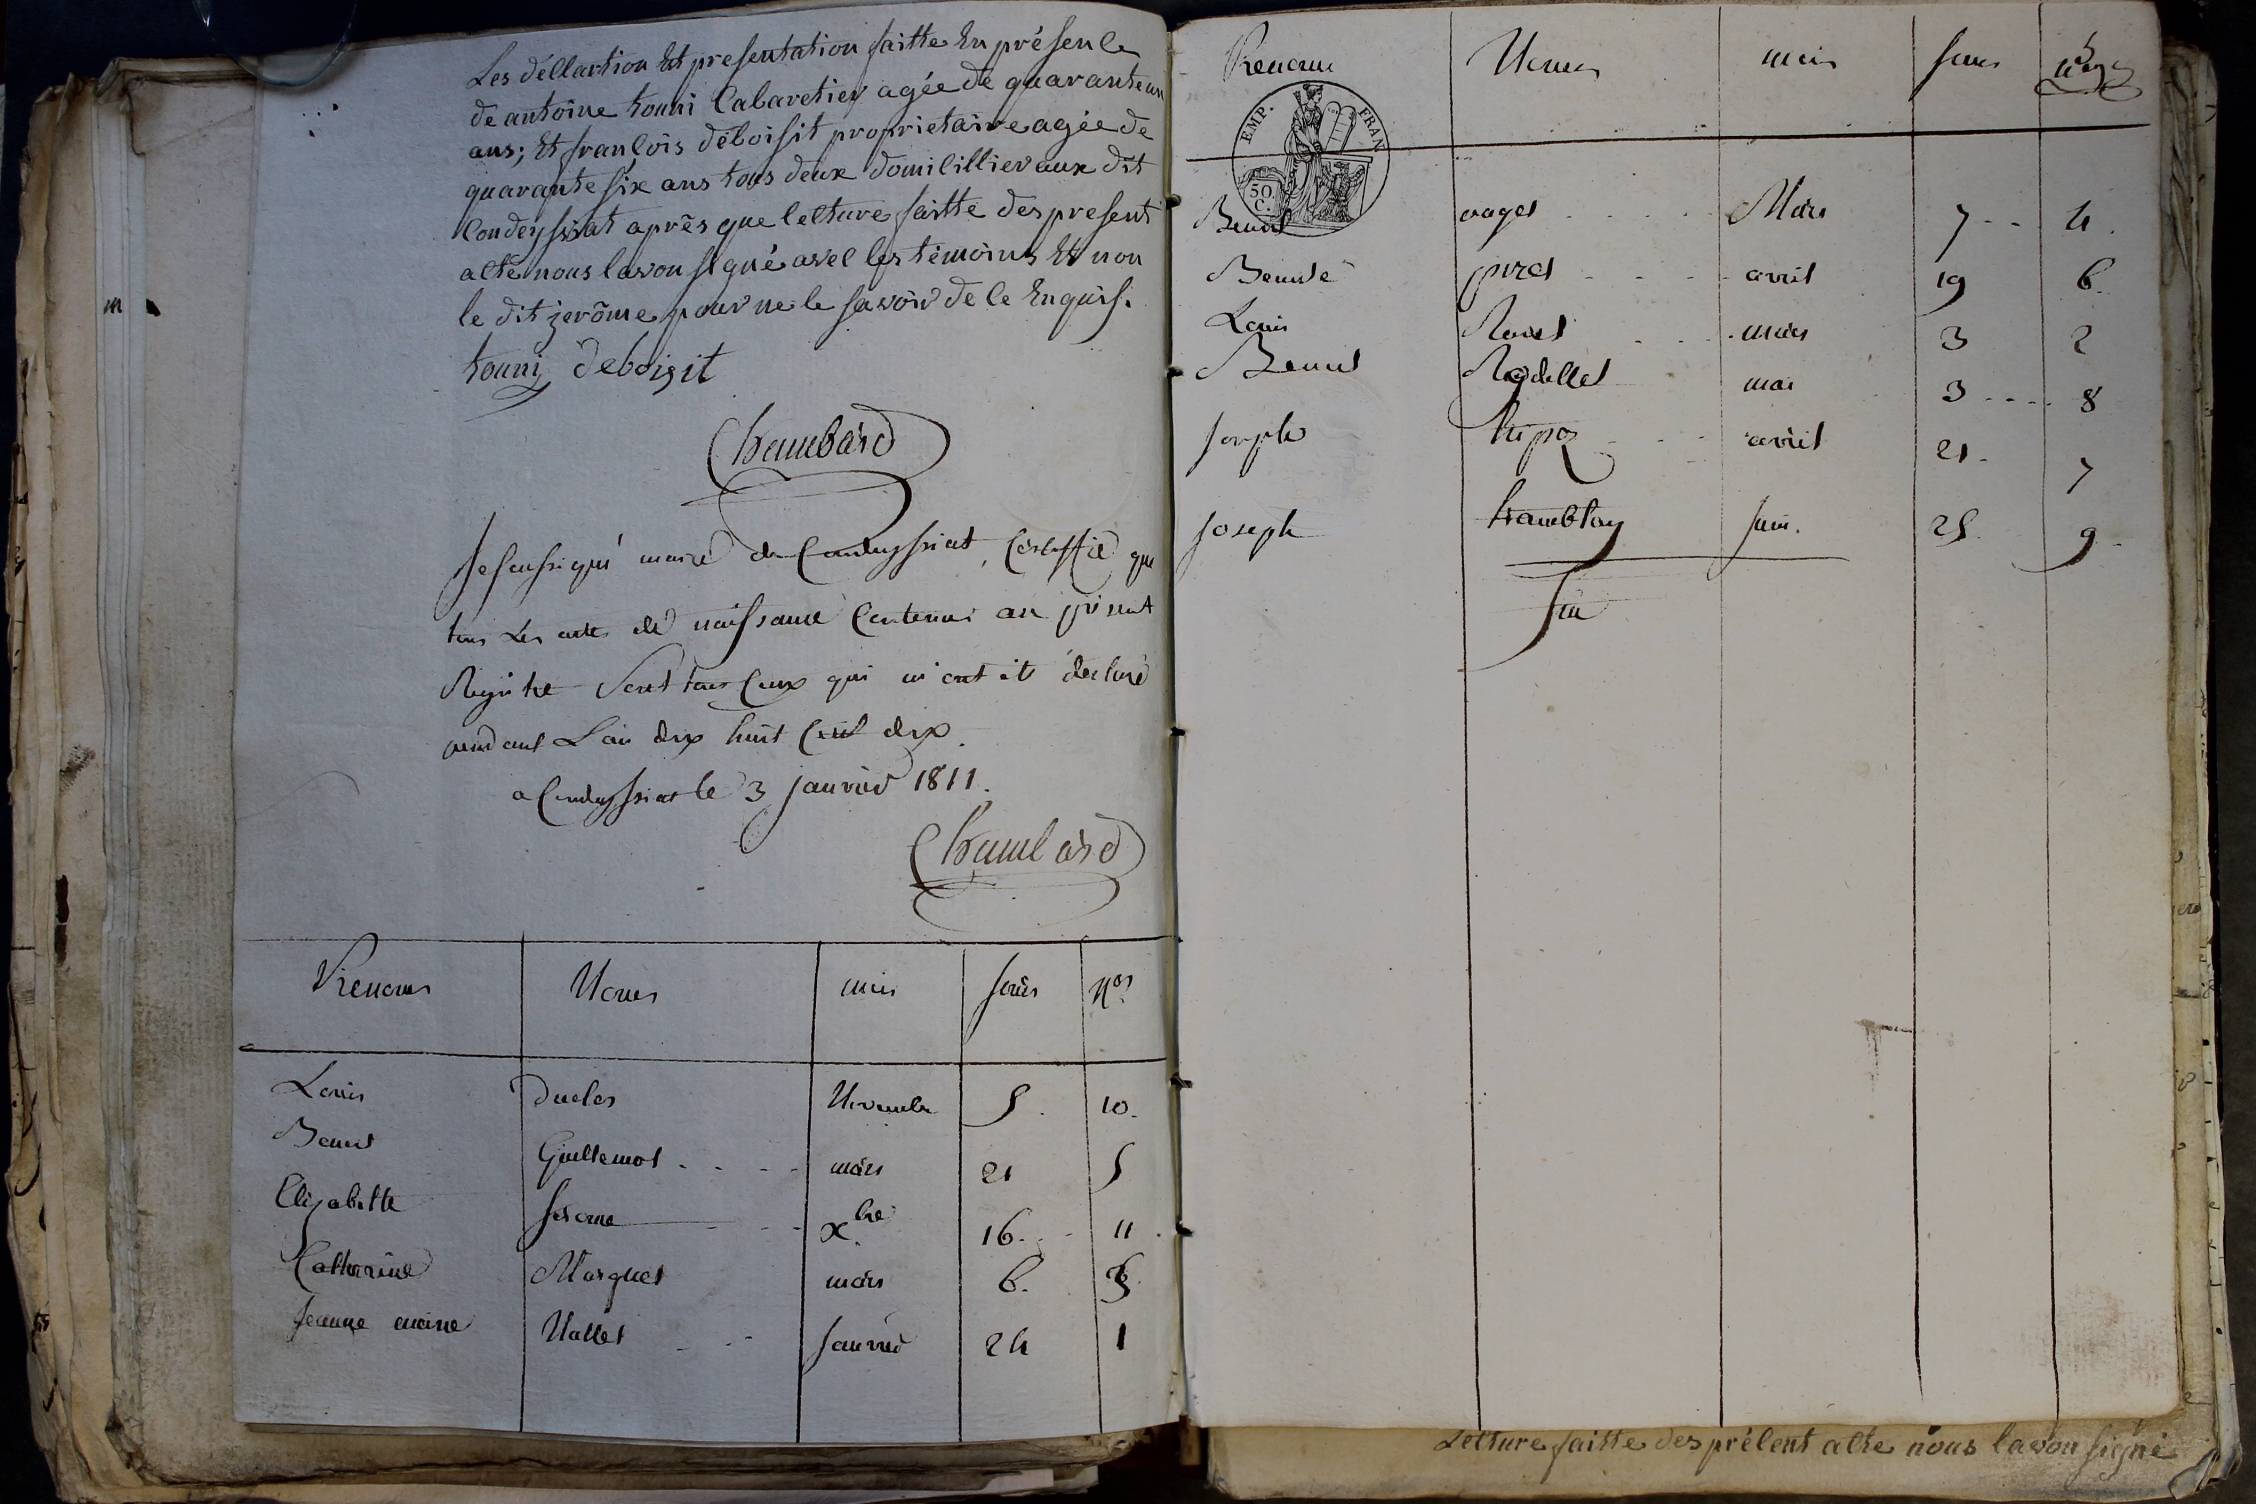 Les déllartion Et presentation faitte En présenle
de antoine touni Cabaretier agée de quarante un
ans; Et franlois déboisit proprietaire agée de
quarante six ans tous deux domilillier aux dit
Condeyssiat après que lelture faitte des present
alte nous lavon signé avel les témoins Et non
le dit jerôme pour ne le savoir de le Enquis.
touni deboisit
Chambard
Je soussigné maire de Condeyssiat, Certiffie que
tous Les actes de naissance Contenus au présent
Registre Sont tous Ceux qui m'ont été déclaré
pendant L'an dix huit Cent dix.
a Condeyssiat le 3 janvier 1811.
Chambard
Prenoms Noms mois Jours Nos
Louis Duclos Novembre 5. 10.
Benoit Guillemot mars 21 5
Elizabette Jerome xbre 16 11
Catherine Marquet mars 6. 3
Jeanne marie Nallet Janvier 24 1
Prenoms Noms mois Jours Nos
EMP. FRAN
50 C.
Benoit Mars 7 4.
Benoite avril 19 6.
Louis mars 3 2
Benoit mai 3 8
Joseph avril 21 7
Joseph tramblay Juin. 25 9
fin
Lelture faitte des prélent alte nous lavon signé